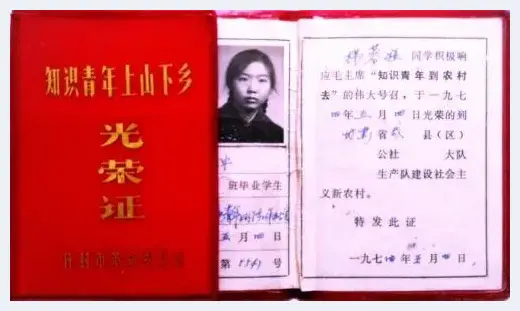 知识青年上山下乡
光
荣
证
班毕业学生
五月四日
第5541号
同学积极响
应毛主席“知识青年到农村
去”的伟大号召，于一九七
四年五月四日光荣的到
省 县（区）
公社 大队
生产队建设社会主
义新农村。
特发此证
一九七四年五月四日